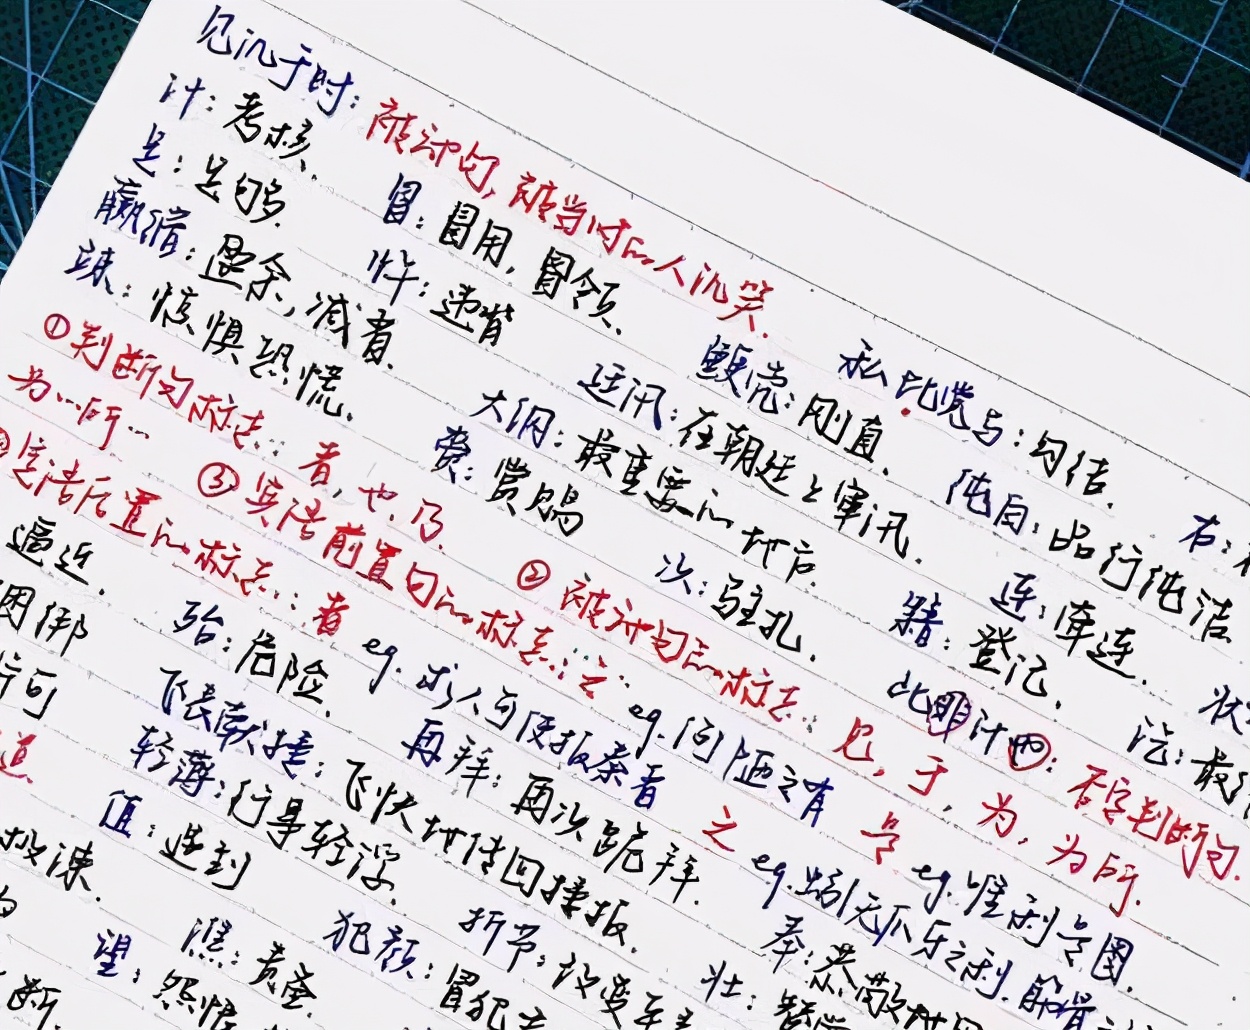 见讥于时：被动句，被当时的人讥笑. 私比党与：勾结. 右：
计：考核. 冒：冒用，冒领. 鲠亮：刚直. 纯白：品行纯洁
足：足够. 忤：违背 廷讯：在朝廷上审讯. 连：牵连. 状
赢缩：盈余，减省. 大纲：最重要的地方. 籍：登记. 讫：最
竦：惊惧恐慌. 赉：赏赐 次：驻扎. 此非计也：否定判断句.
①判断句标志：者，也，乃. ②被动句的标志：见，于，为，为所
为…所… ③宾语前置句的标志：之 eg.何陋之有 是 eg.惟利是图.
定语后置的标志：者 eg.求人可使报秦者 之 eg.蚓无爪牙之利，筋骨
逼近. 殆：危险. 再拜：再次跪拜. 奉：恭敬地
绑 飞表献捷：飞快地传回捷报. 壮：
可 轻薄：行事轻浮. 折节：改变
道 值：遇到 犯颜：冒犯
谏.
望：怨恨
断.